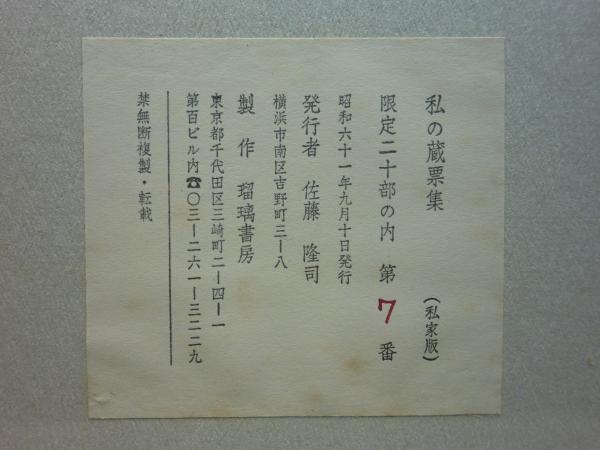 私の蔵票集 (私家版)
限定二十部の内 第7番
昭和六十一年九月十日発行
発行者 佐藤 隆司
横浜市南区吉野町三ー八
製作 瑠璃書房
東京都千代田区三崎町二ー四ー一
第百ビル内☎〇三ー二六一ー三二二九
禁無断複製・転載